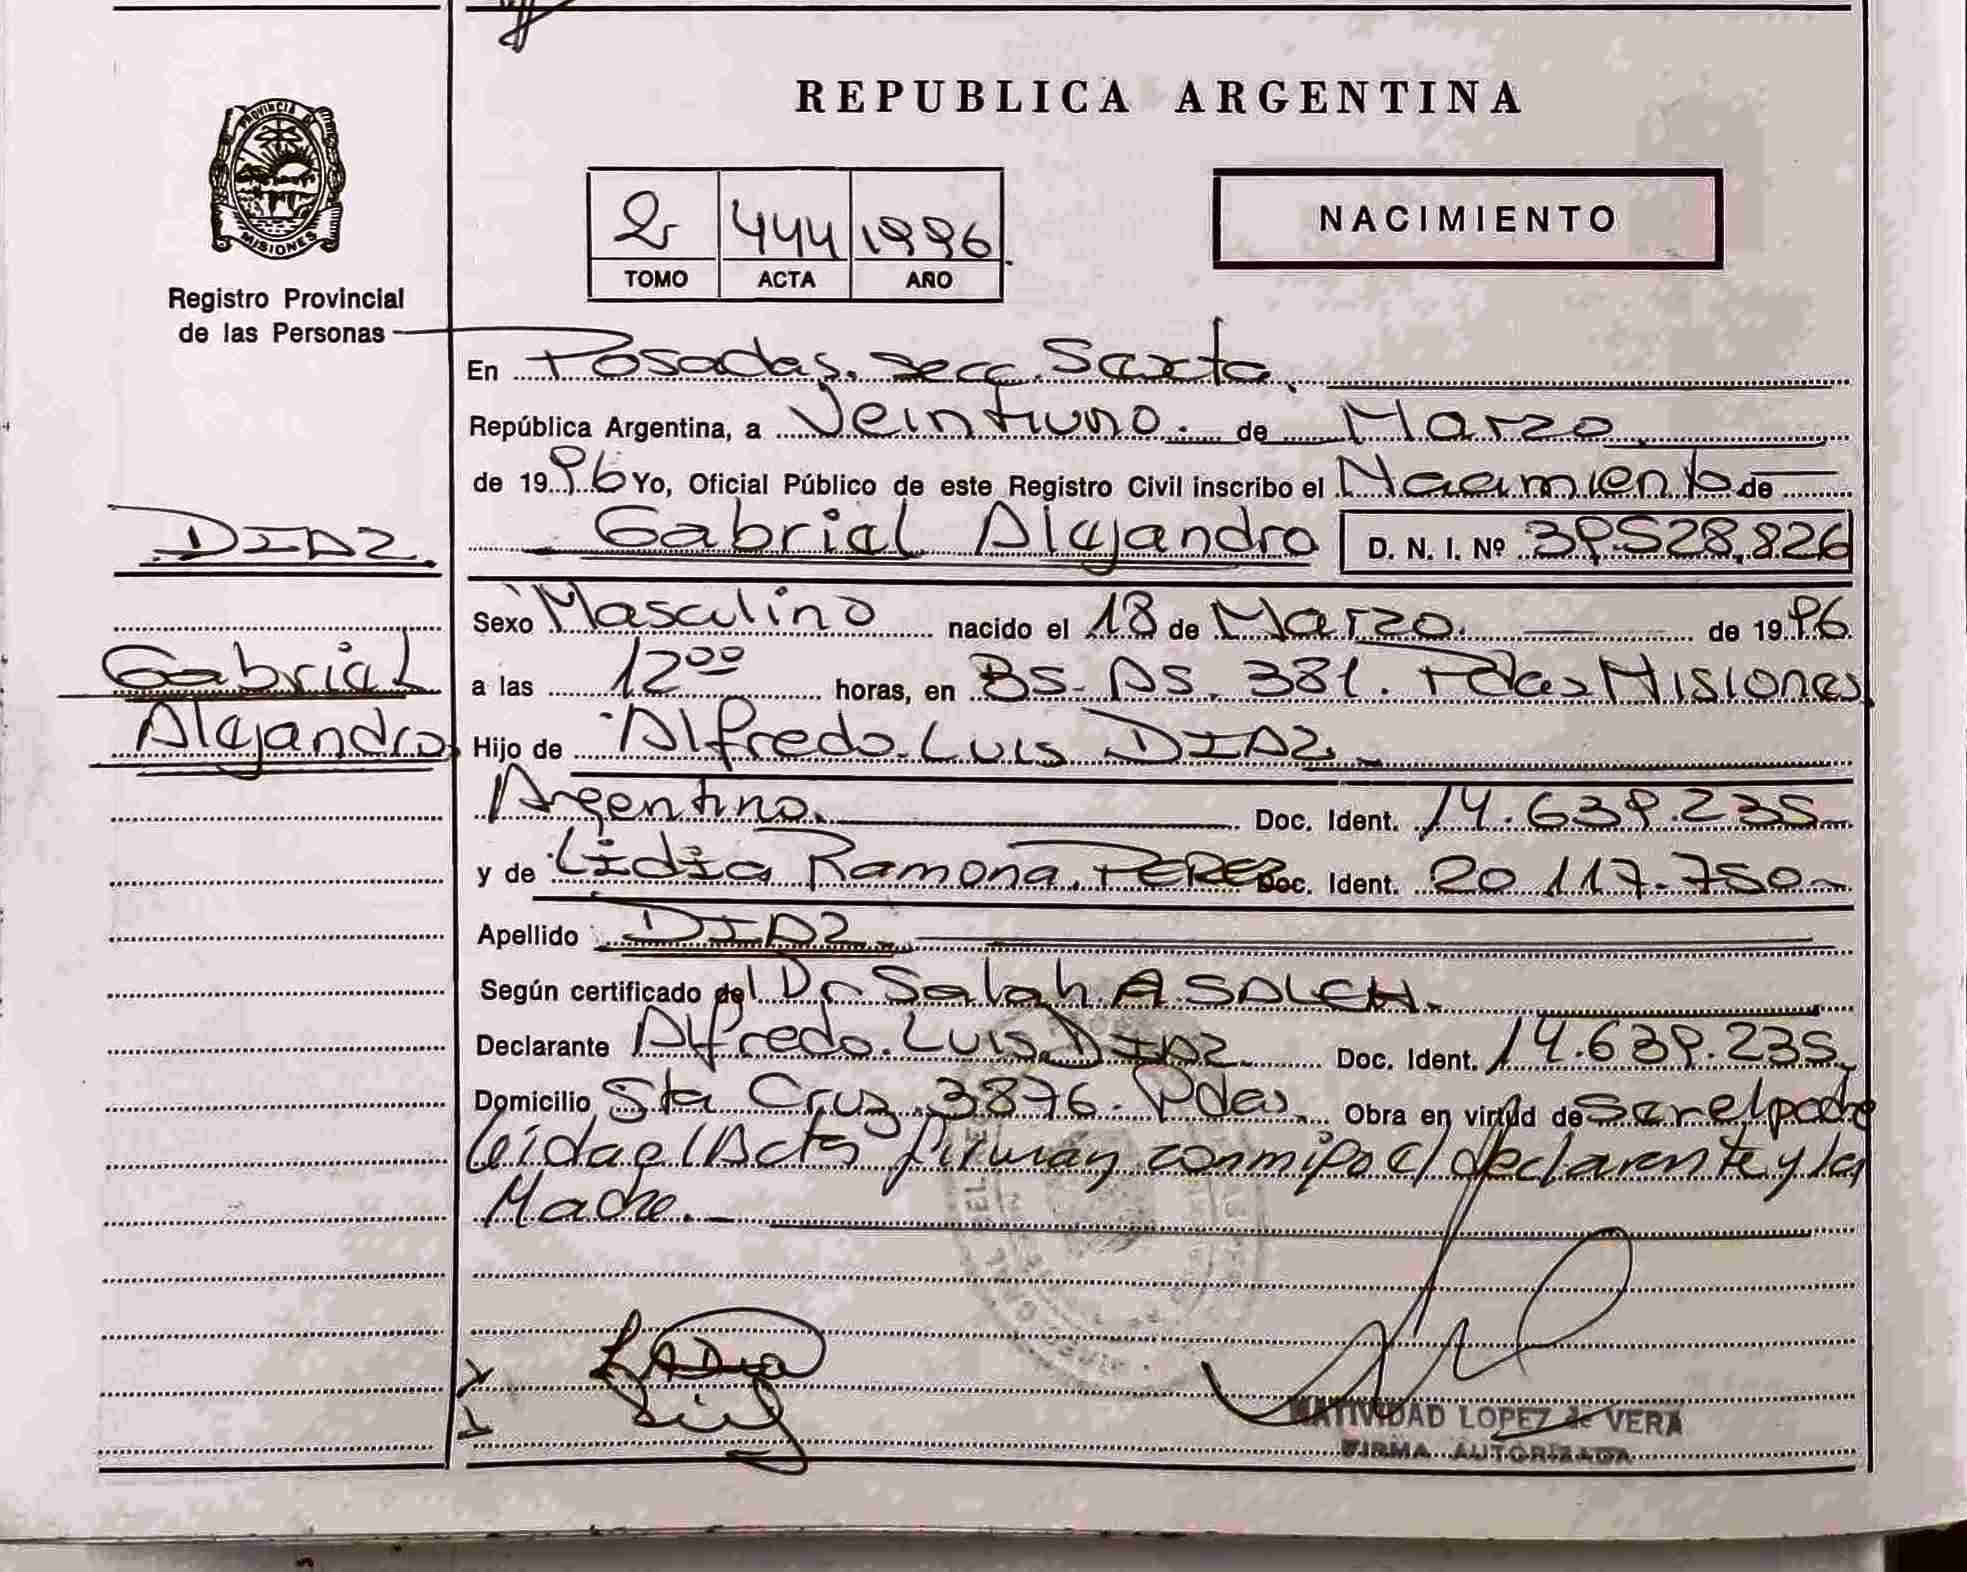 REPUBLICA ARGENTINA
PROVINCIA DE
MISIONES
Registro Provincial
de las Personas
2 444 1996
TOMO ACTA AÑO
NACIMIENTO
En Posadas. secc. Sexta.
República Argentina, a Veintiuno. de Marzo
de 1996 Yo, Oficial Público de este Registro Civil inscribo el Nacimiento de
DIAZ.
Gabriel Alejandro D. N. I. Nº 39.528.826
Sexo Masculino nacido el 18 de Marzo. de 1996.
Gabriel
a las 12 00 horas, en Bs. As. 381. Pdas Misiones
Alejandro
Hijo de Alfredo Luis DIAZ
Argentino. Doc. Ident. 14.639.235
y de Lidia Ramona PEREZ Doc. Ident. 20.117.750
Apellido DIAZ
Según certificado del Dr Salah A. SALEH.
Declarante Alfredo Luis DIAZ Doc. Ident. 14.639.235
Domicilio Sta Cruz 3876. Pdas. Obra en virtud de ser el padre
leida el Acta firman conmigo el declarante y la
Madre.
NATIVIDAD LOPEZ de VERA
FIRMA AUTORIZADA